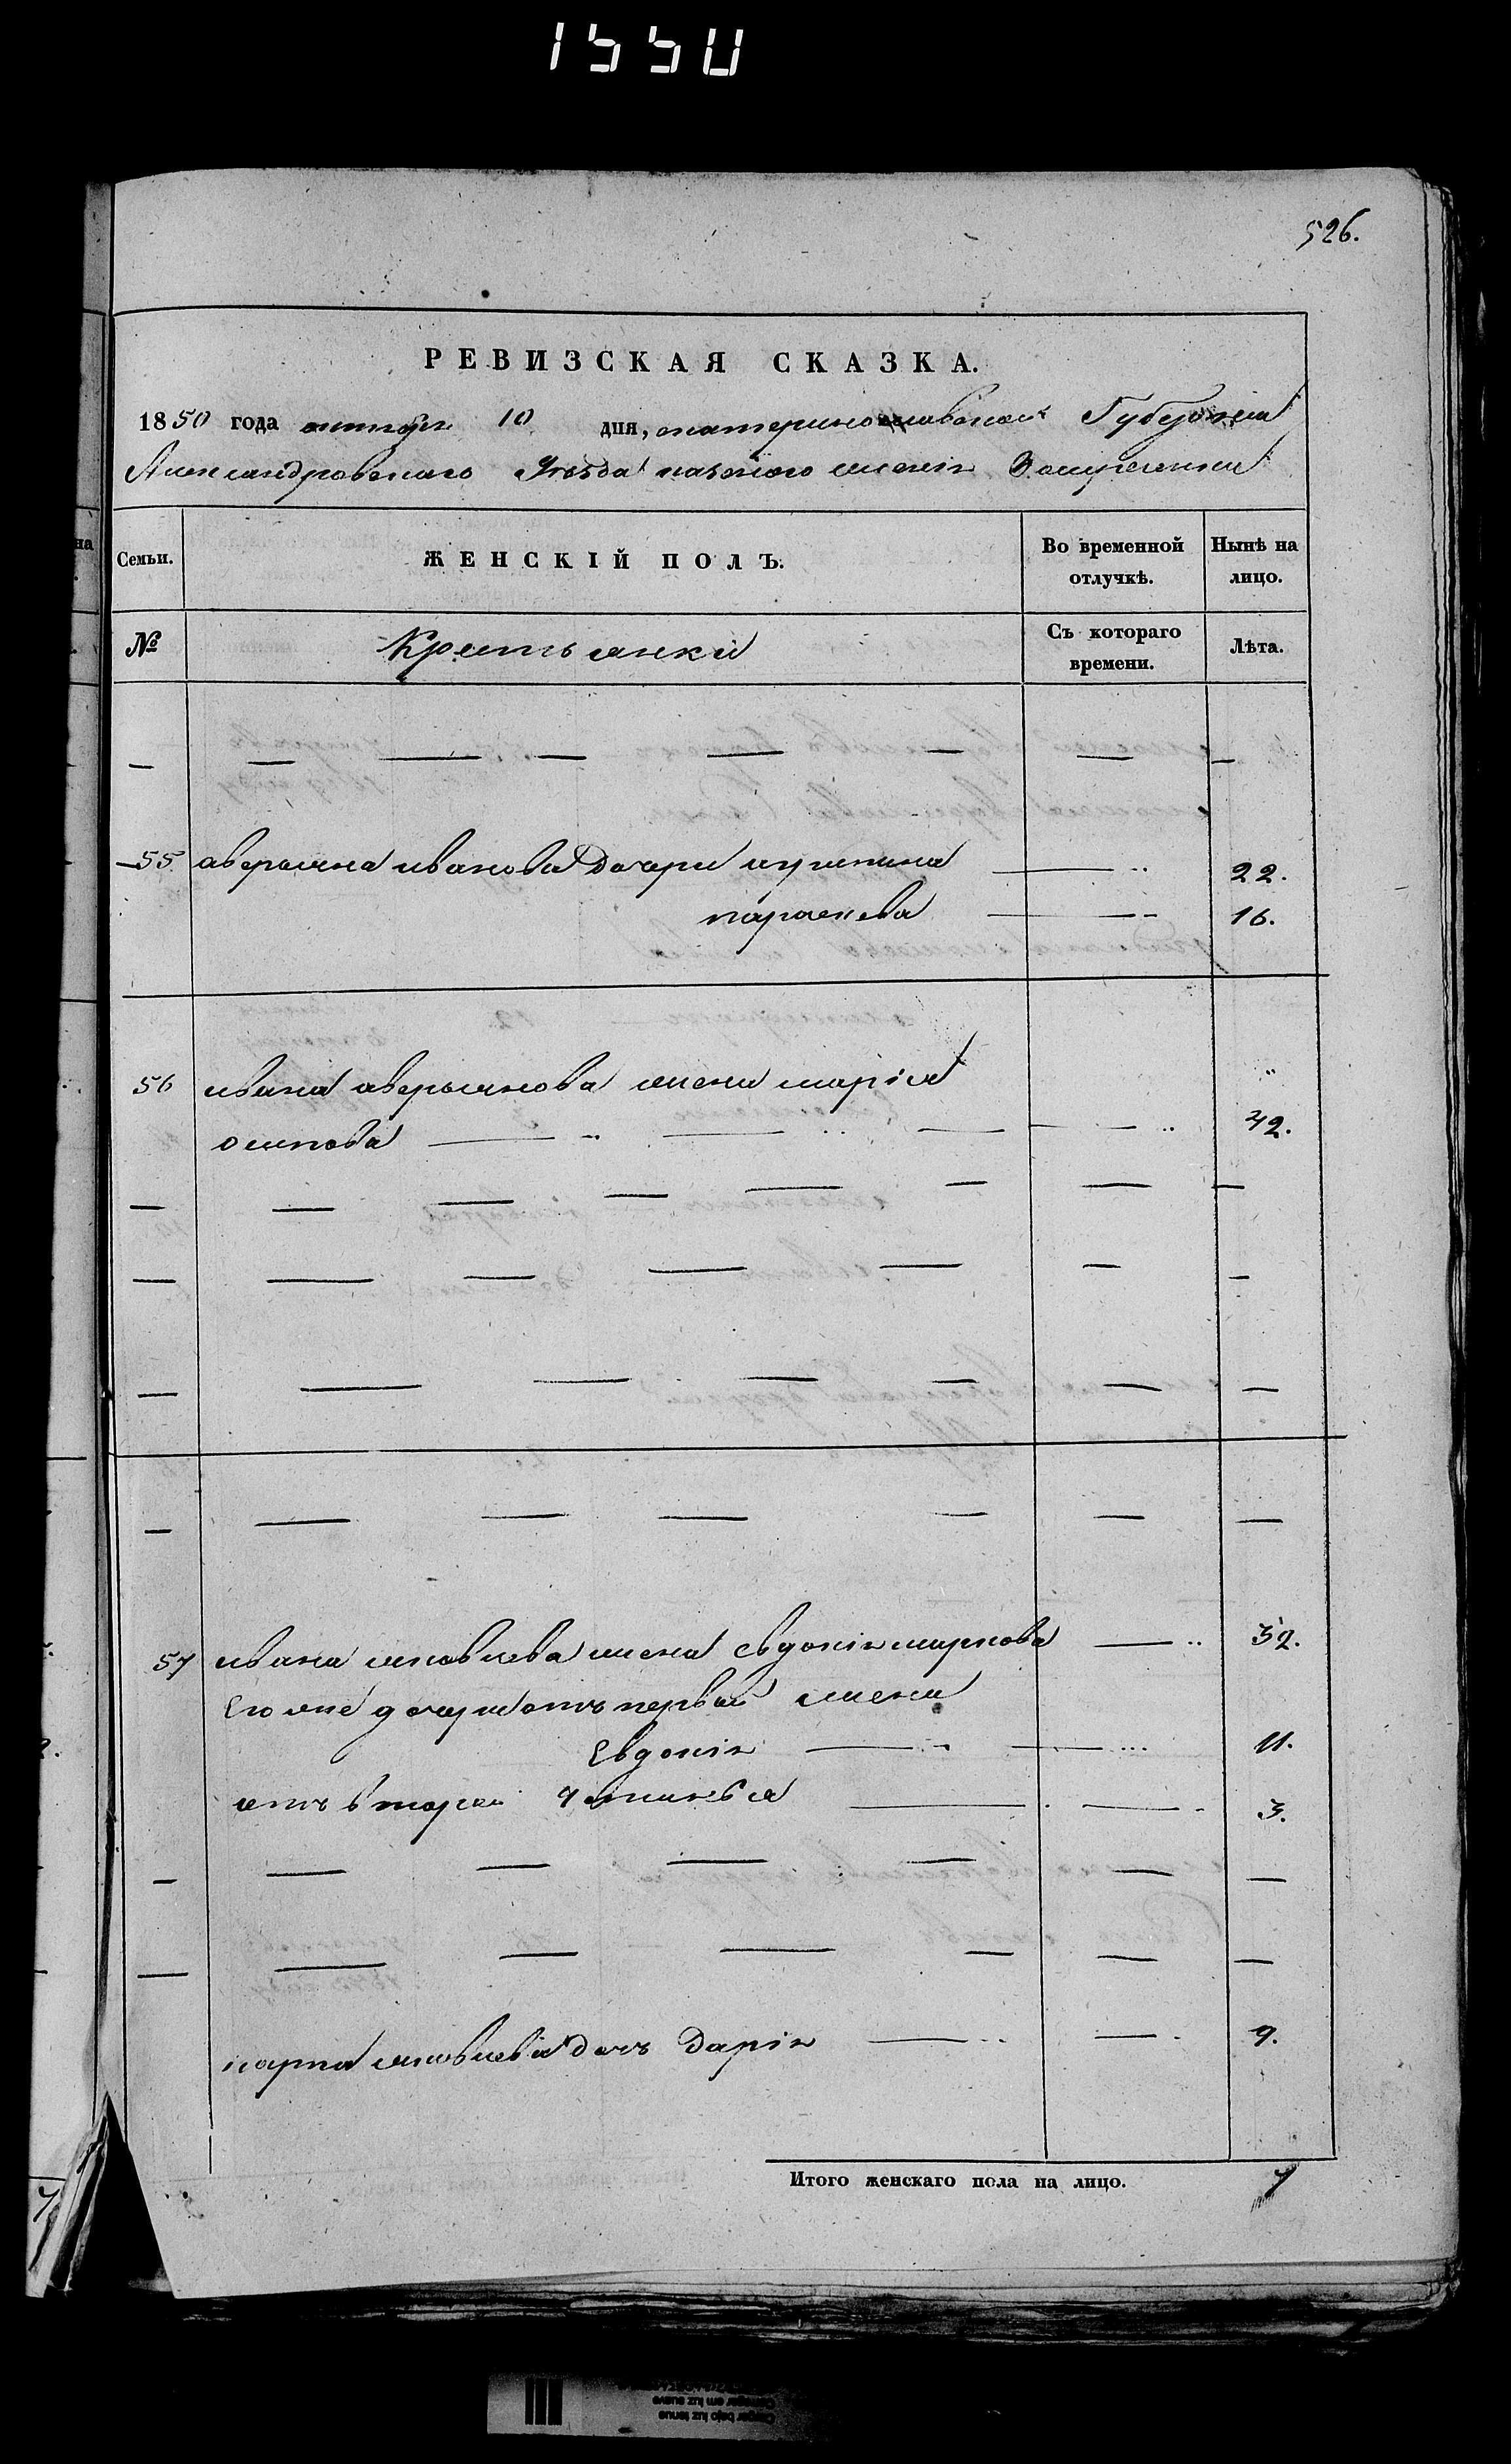 1550
526.
РЕВИЗСКАЯ СКАЗКА.
1850 года октября 10 дня, екатеринославской Губерніи
Александровскаго Уѣзда казеного имения
Семьи. ЖЕНСКІЙ ПОЛЪ. Во временной отлучкѣ. Нынѣ на лицо.
№ Крестьянки Съ котораго времени. Лѣта.
55 аверьяна иванова дочери 22.
параскева 16.
56 ивана аверьянова жена марія
осипова 42.
57 ивана яковлева жена евдокія маркова 32.
Его же дочери отъ первой жены
Евдокія 11.
отъ второй 3.
карпа яковлева дочь Дарія 9.
Итого женскаго пола на лицо. 7